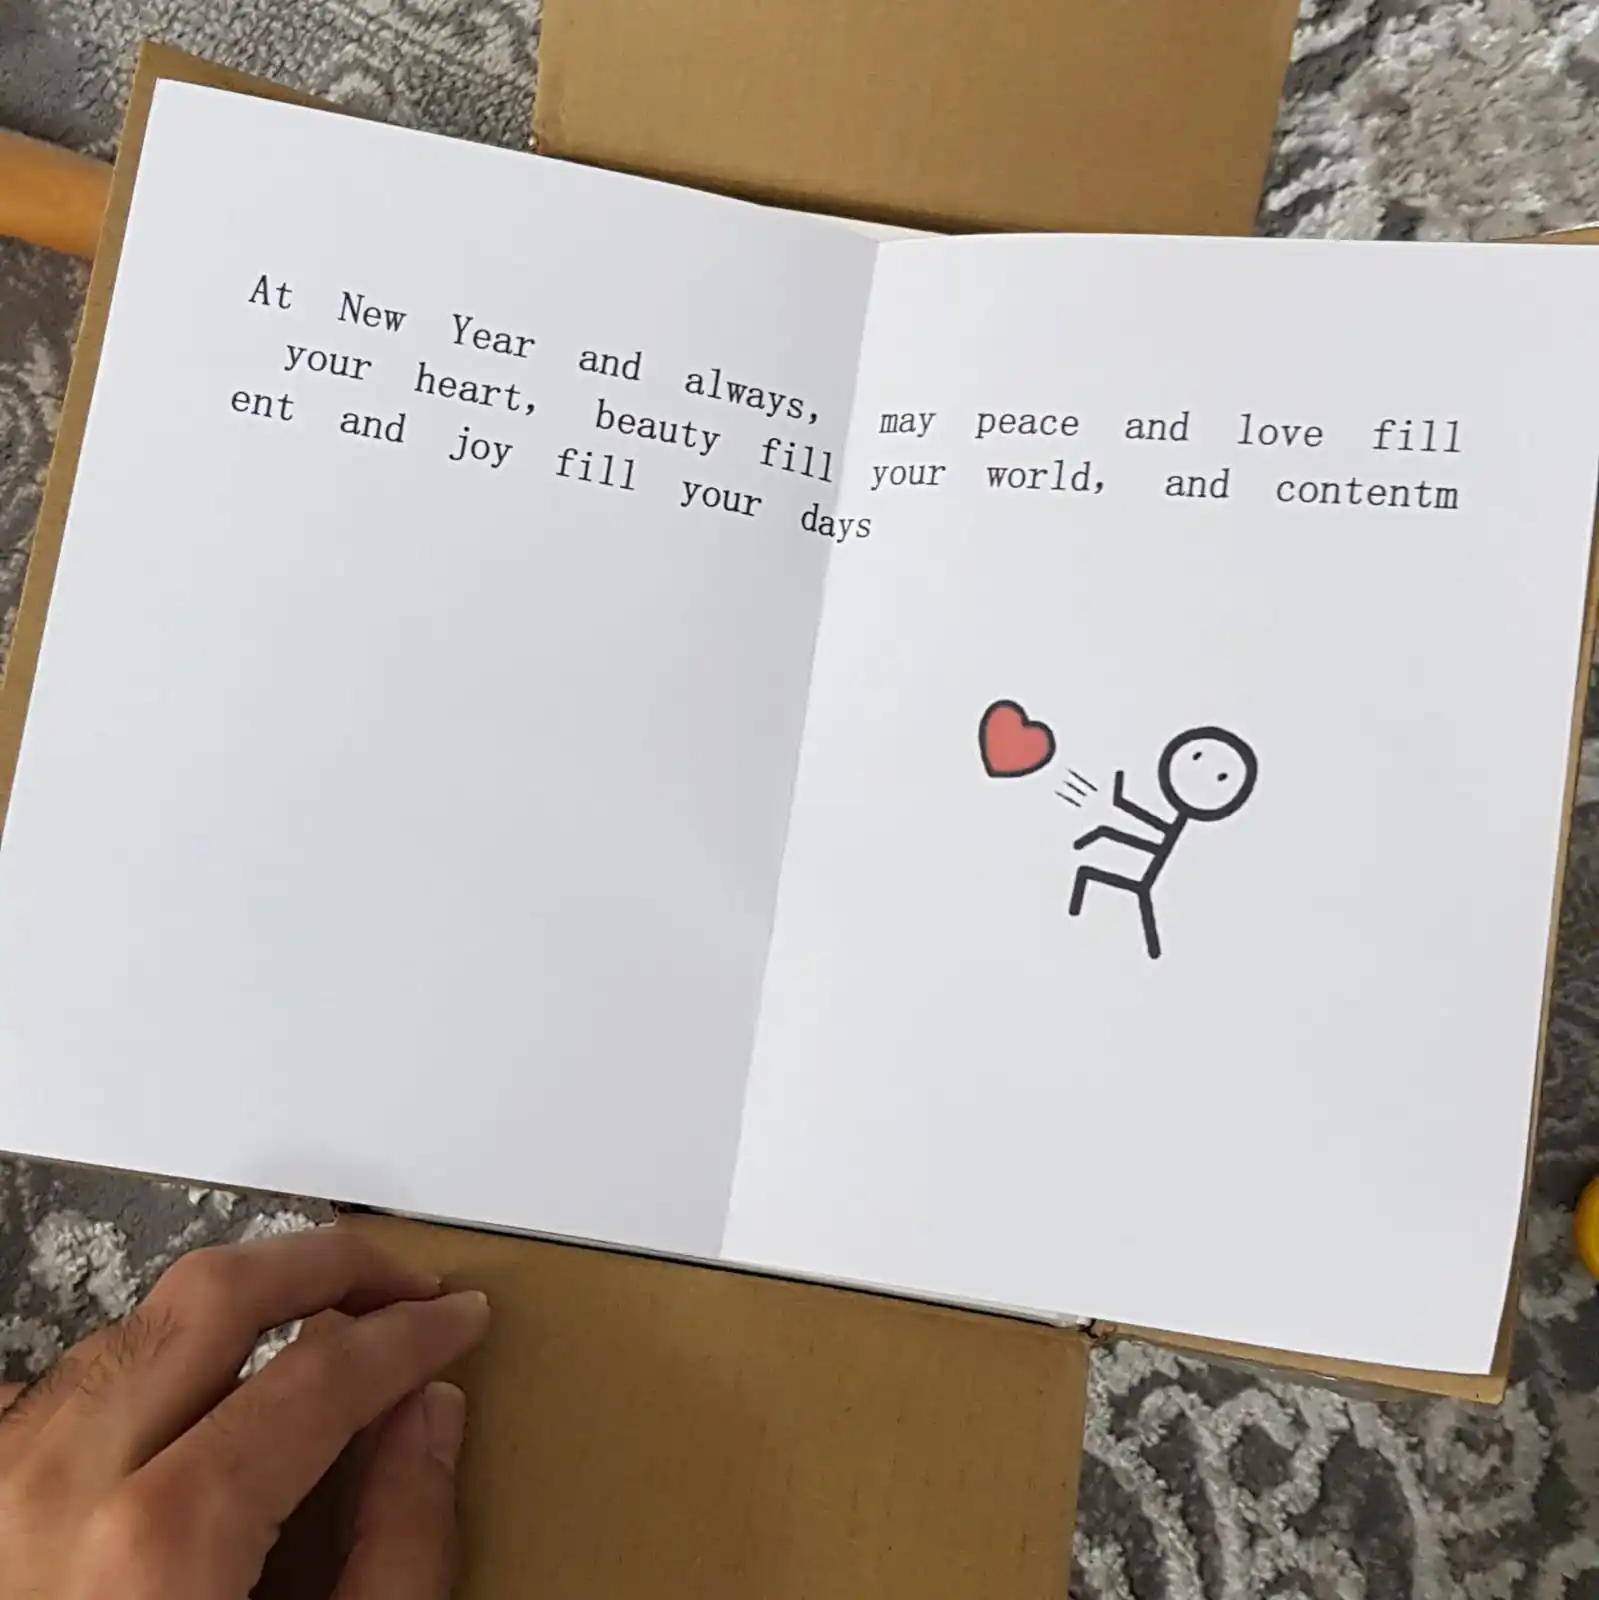 At New Year and always, may peace and love fill
your heart, beauty fill your world, and contentm
ent and joy fill your days